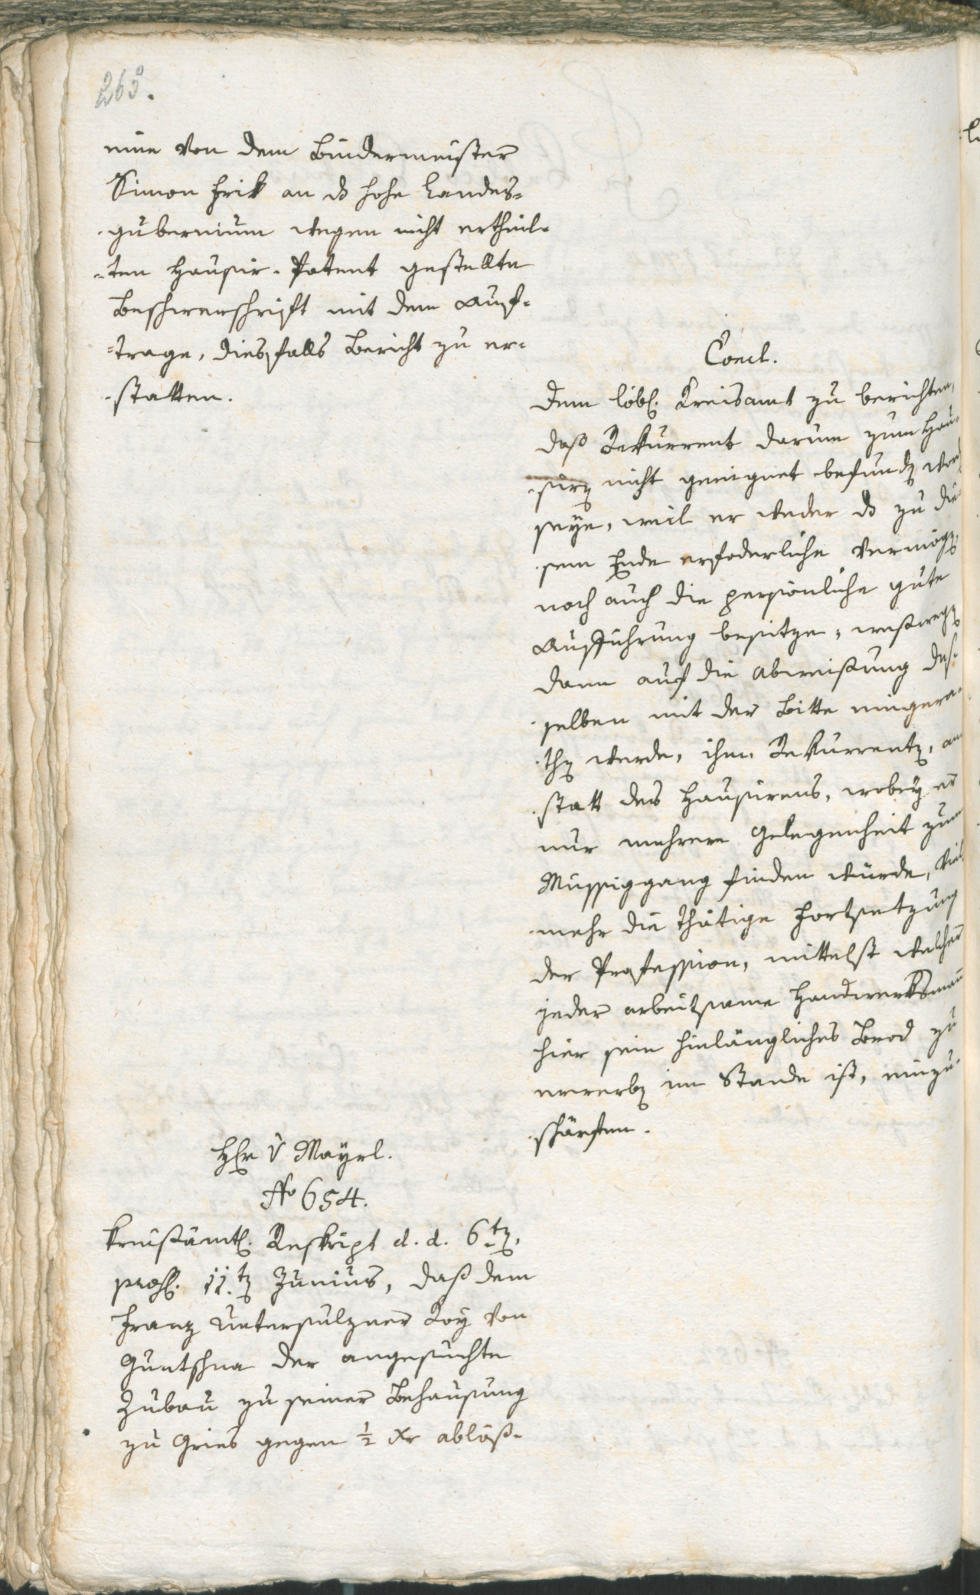 263.
eine von dem Bindermeister
Simon Frik an ds hohe Landes-
-gubernium wegen nicht ertheil-
-ten Hausir-Patent gestellte
Beschwerschrift mit dem Auf-
-trage, diesfalls Bericht zu er-
-statten.
Concl.
Dem löbl. Kreisamt zu berichten,
daß Rekurrent darum zum Hau-
-sirn nicht geeignet befunden
seye, weil er weder ds zu die-
-sem Ende erfoderliche Vermögen,
noch auch die persönliche gute
Aufführung besitze, weßwegen
dann auf die Abweisung des-
-selben mit der Bitte eingera-
-then werde, ihm Rekurrenten, an-
-statt des Hausirens, wobey er
nur mehrere Gelegenheit zum
Mussiggang finden würde, viel
-mehr die thätige Fortsetzung
der Profession, mittelst welcher
jeder arbeitsame Handwerksmann
hier sein hinlängliches Brod zu
erwerben im Stande ist, einzu-
-schärfen.
Hr v Mayrl.
No 654.
Kreisämtl. Reskript d. d. 6ten,
praes. 11.ten Junius, daß dem
Franz Untersulzner Roy von
Guntschna der angesuchte
Zubau zu seiner Behausung
zu Gries gegen ½ xr ablöß-